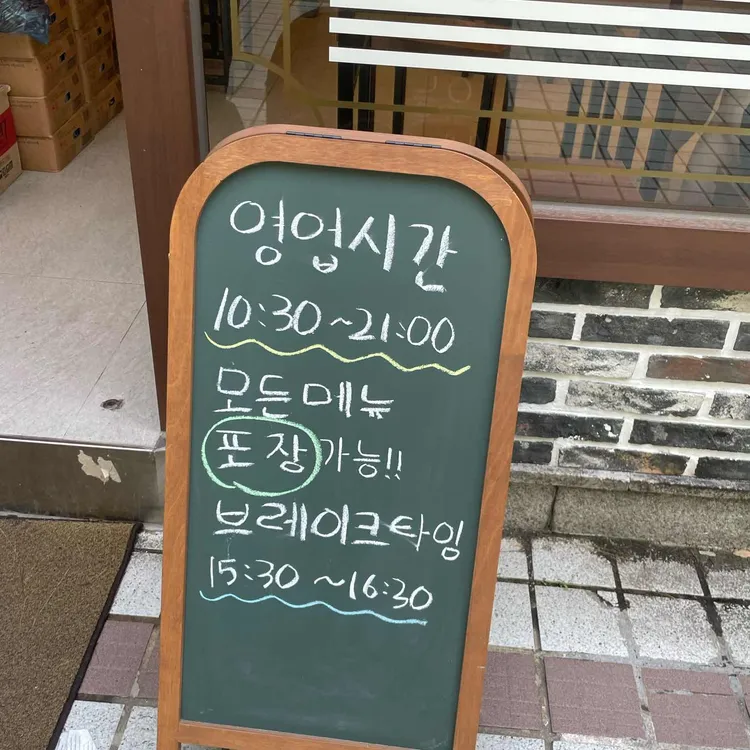 영업시간
10:30~21:00
모든메뉴
포장가능!!
브레이크타임
15:30~16:30